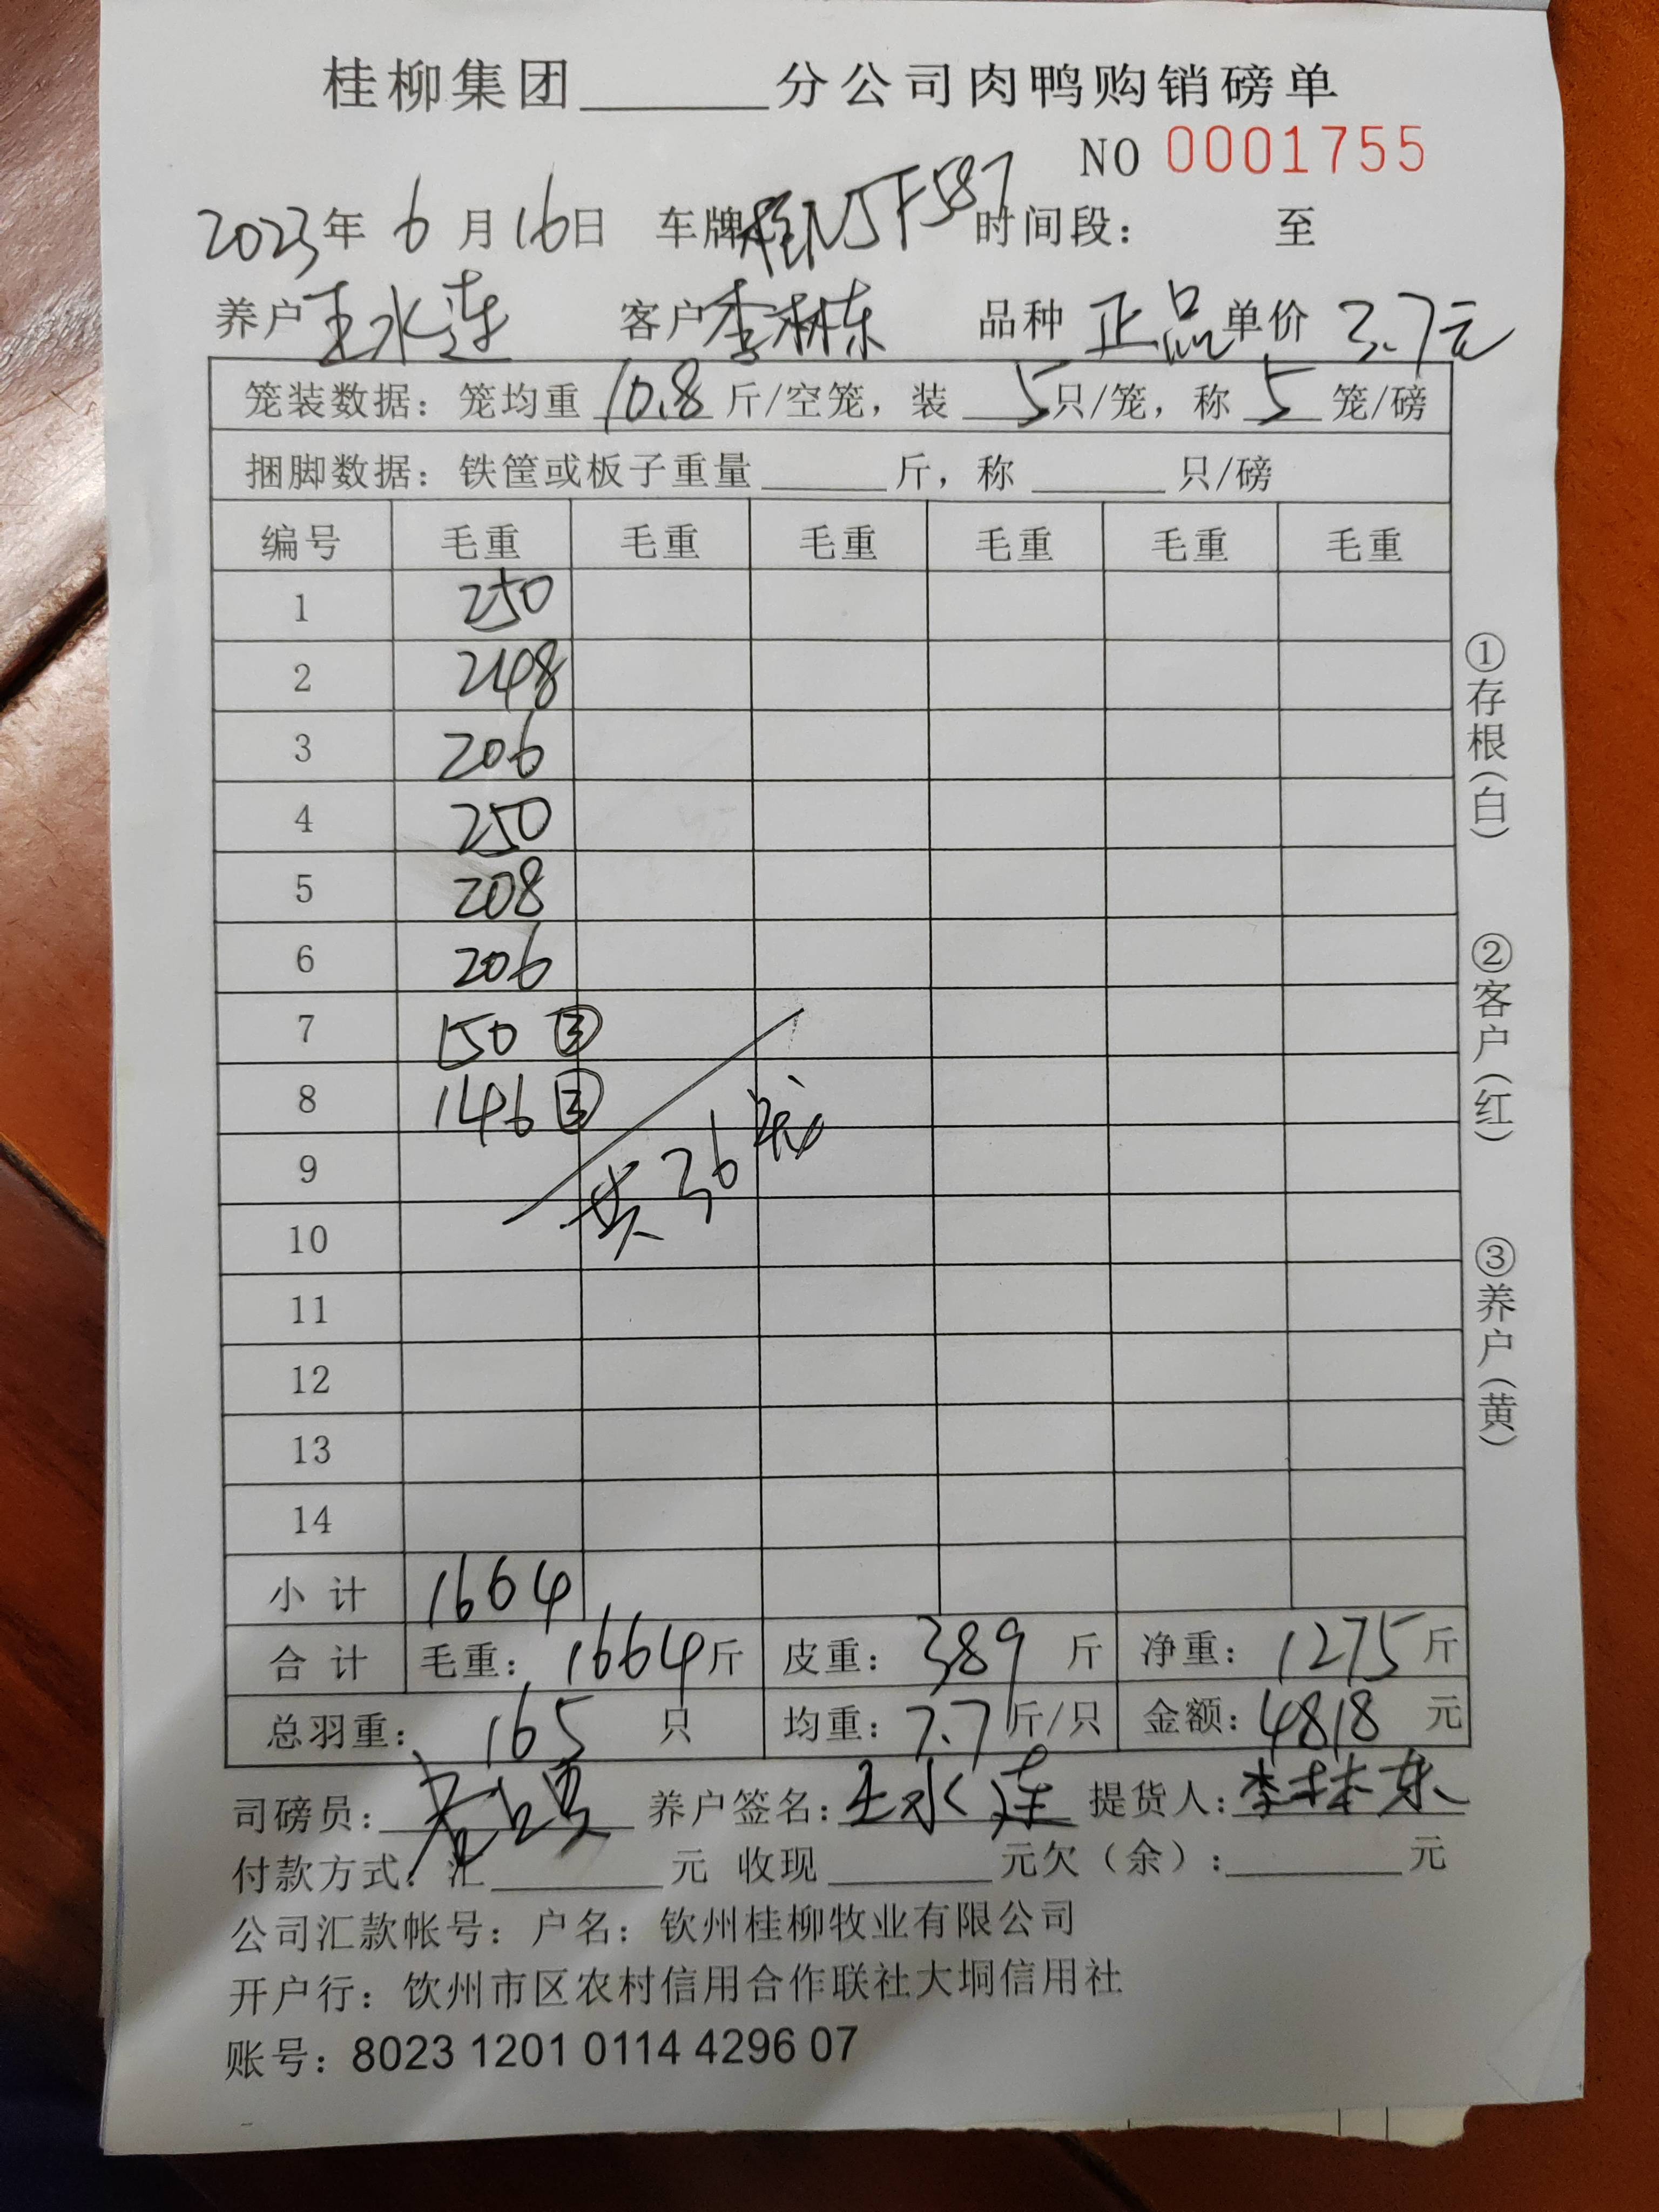 桂柳集团______分公司肉鸭购销磅单
NO 0001755
2023年 6 月 16日 车牌桂N5F587 时间段: 至
养户王水连 客户李林东 品种 正品 单价 3.7元
笼装数据: 笼均重 10.8 斤/空笼, 装 5只/笼, 称 5 笼/磅
捆脚数据: 铁筐或板子重量______斤, 称______只/磅
编号 毛重 毛重 毛重 毛重 毛重 毛重
1 250
2 248
3 206
4 250
5 208
6 206
7 150 ③
8 146 ③
共36笼
9
10
11
12
13
14
小 计 1664
合 计 毛重: 1664斤 皮重: 389 斤 净重: 1275 斤
总羽重: 165 只 均重: 7.7 斤/只 金额: 4818 元
司磅员: 养户签名: 王水连 提货人: 李林东
付款方式: 汇______元 收现______元欠(余):______元
公司汇款帐号: 户名: 钦州桂柳牧业有限公司
开户行: 钦州市区农村信用合作联社大垌信用社
账号: 8023 1201 0114 4296 07
①存根(白)
②客户(红)
③养户(黄)